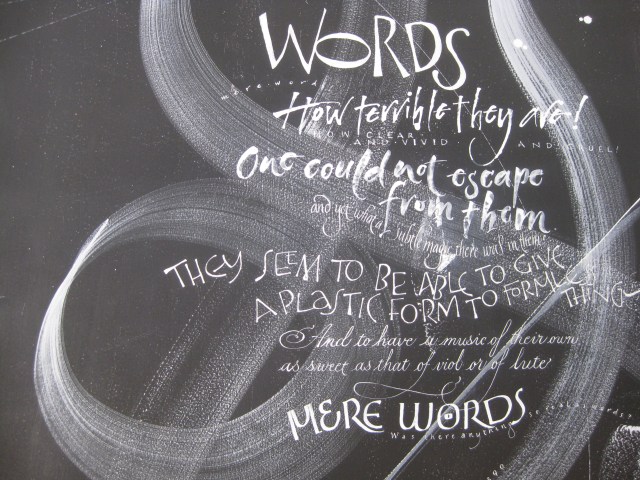 WORDS
mere words
How terrible they are!
HOW CLEAR,
AND VIVID AND CRUEL!
One could not escape
from them
and yet what a subtle magic there was in them!
THEY SEEM TO BE ABLE TO GIVE
A PLASTIC FORM TO FORMLESS THINGS
And to have a music of their own
as sweet as that of viol or of lute
MERE WORDS
Was there anything so real as words?